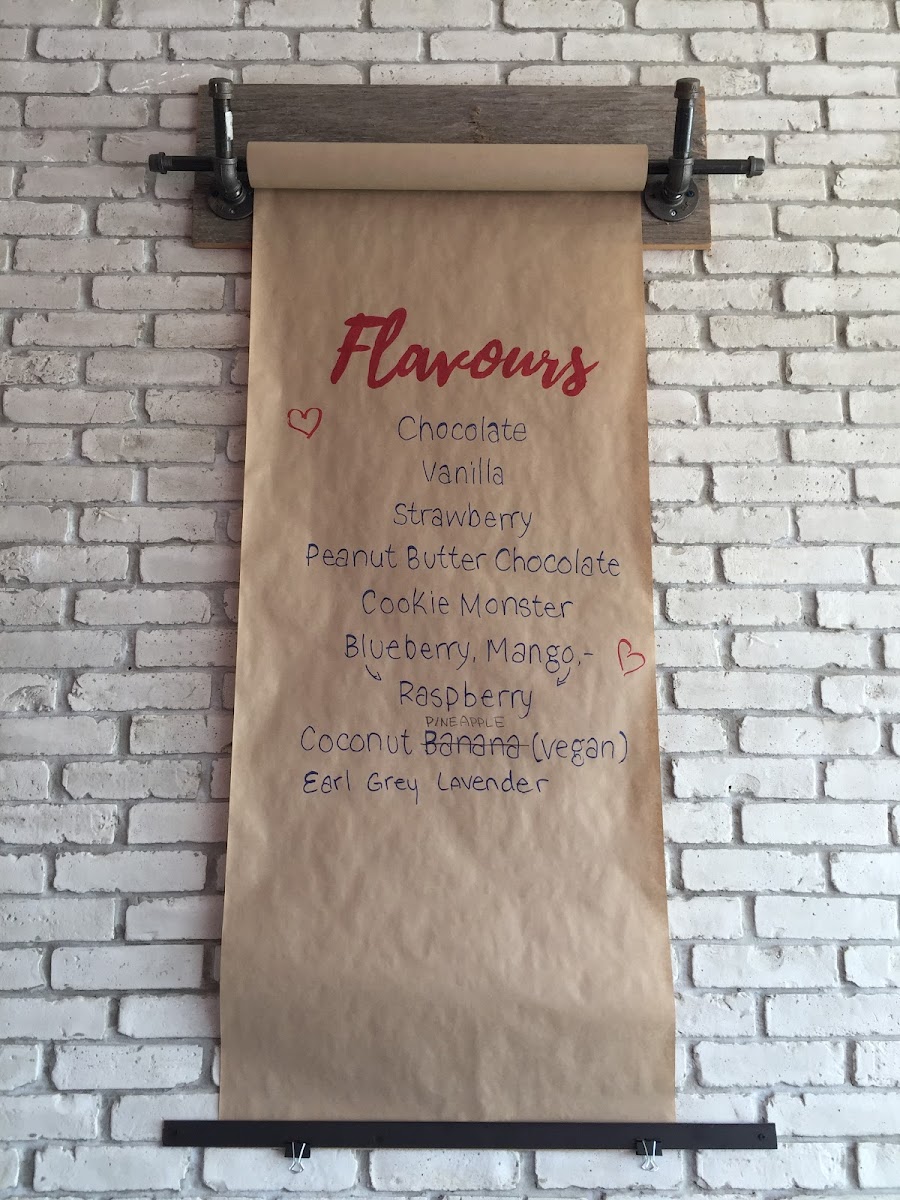 Flavours
Chocolate
Vanilla
Strawberry
Peanut Butter Chocolate
Cookie Monster
Blueberry, Mango,-
Raspberry
PINEAPPLE
Coconut Banana (vegan)
Earl Grey Lavender